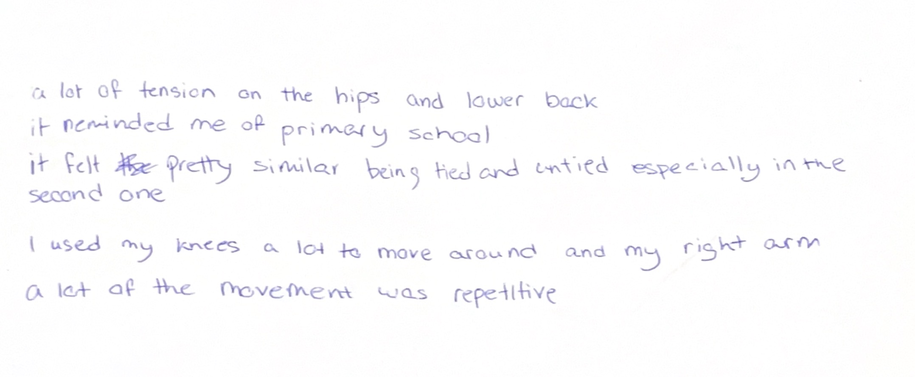 a lot of tension on the hips and lower back
it reminded me of primary school
it felt pretty similar being tied and untied especially in the
second one
I used my knees a lot to move around and my right arm
a lot of the movement was repetitive